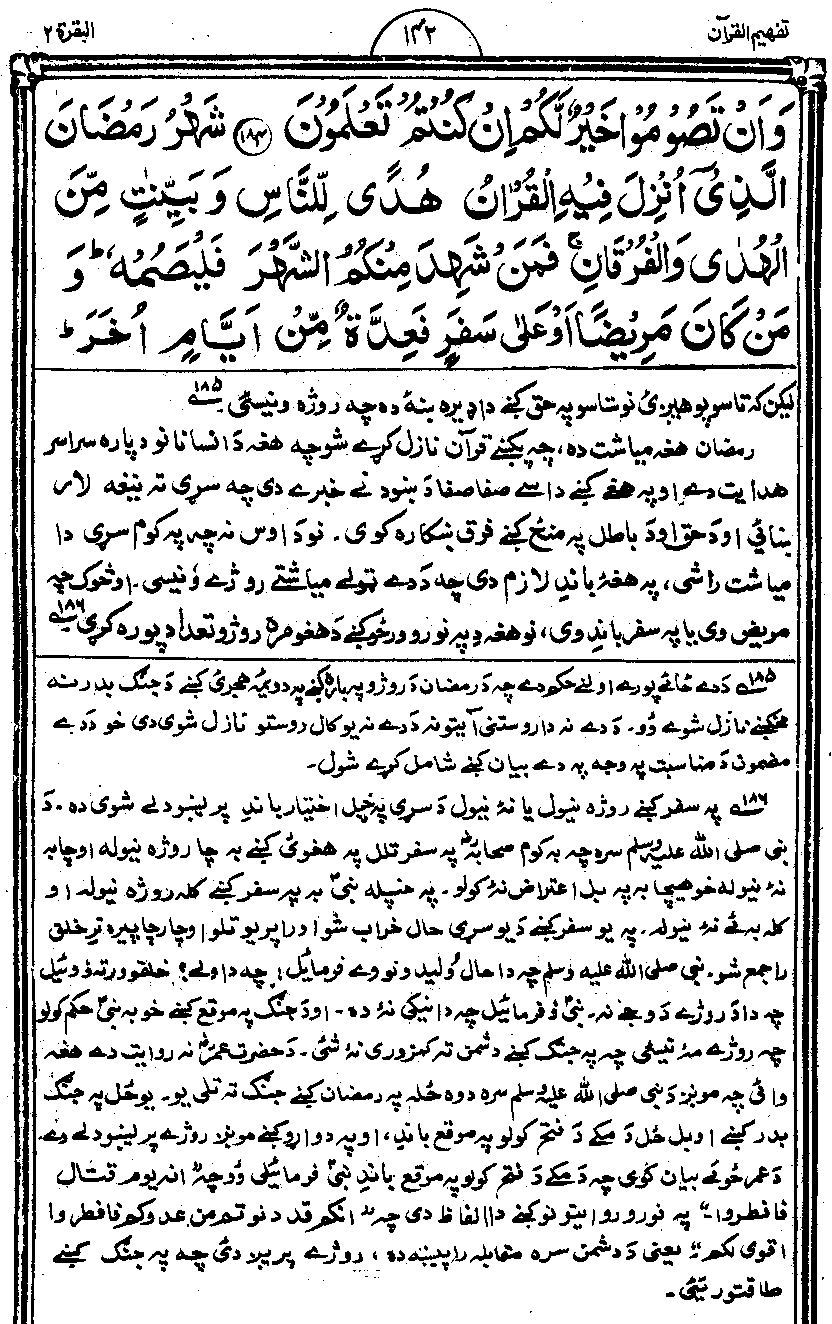 تفهیم القرآن
۱۴۲
البقرة ۲
وَاَنْ تَصُوْمُوْا خَيْرٌ لَّكُمْ اِنْ كُنْتُمْ تَعْلَمُوْنَ ۱۸۴ شَهْرُ رَمَضَانَ
الَّذِيْٓ اُنْزِلَ فِيْهِ الْقُرْاٰنُ هُدًى لِّلنَّاسِ وَ بَيِّنٰتٍ مِّنَ
الْهُدٰى وَالْفُرْقَانِ ۚ فَمَنْ شَهِدَ مِنْكُمُ الشَّهْرَ فَلْيَصُمْهُ ؕ وَ
مَنْ كَانَ مَرِيْضًا اَوْ عَلٰى سَفَرٍ فَعِدَّةٌ مِّنْ اَيَّامٍ اُخَرَ ؕ
لیکن که تاسو پوهیږئ نو ستاسو په حق کښے دا ډیره ښه ده چه روژه ونیسئ ۱۸۵
رمضان هغه میاشت ده، چه پکښے قرآن نازل کړے شو چه هغه د انسانانو دپاره سراسر
هدایت دے او په هغے کښے داسے صفا صفا د ښودنے خبرے دی چه سړی ته نیغه لار
ښائی او د حق او د باطل په منځ کښے فرق ښکاره کوی۔ نو د اوس نه چه په کوم سړی دا
میاشت راشی، په هغۀ باندِ لازم دی چه د دے ټولے میاشتے روژے وُنیسی۔ او څوک چه
مریض وی یا په سفر باندِ وی، نو هغه دِ په نورو ورځو کښے د هغو مره روژو تعداد پوره کړی ۱۸۶
۱۸۵ د دے ځائے پورے اولنے حکم دے چه د رمضان د روژو په باره کښے په دویمه هجری کښے د جنګ بدر نه
مخکښے نازل شوے وو۔ د دے نه دا روستنی آیتونه د دے نه یو کال روستو نازل شوی دی خو د دے
مضمون د مناسبت په وجه په دے بیان کښے شامل کړے شول۔
۱۸۶ په سفر کښے روژه نیول یا نۀ نیول د سړی په خپل اختیار باندِ پریښودلے شوی ده۔ د
نبی صلی الله علیه وسلم سره چه به کوم صحابهؓ په سفر تلل په هغوئ کښے به چا روژه نیوله او چا به
نۀ نیوله خو هیچا به په بل اعتراض نۀ کولو۔ په خپله نبیؐ به په سفر کښے کله روژه نیوله او
کله به ئے نۀ نیوله۔ په یو سفر کښے د یو سړی حال خراب شو او راپریوتلو او چارچاپیره تر خلق
راجمع شو۔ نبی صلی الله علیه وسلم چه دا حال وُلید ونو وے فرمائیل! چه دا ولے؟ خلقو ورته وُوئیل
چه دا د روژے د وجے نه۔ نبیؐ وُفرمائیل چه دا نیکی نۀ ده۔ او د جنګ په موقع کښے خو به نبیؐ حکم کولو
چه روژے مۀ نیسئ چه په جنګ کښے دشمن ته کمزوری نۀ شئ۔ د حضرت عمرؓ نه روایت دے هغه
وائی چه مونږ د نبی صلی الله علیه وسلم سره دوه ځله په رمضان کښے جنګ ته تلی یو۔ یو ځل په جنګ
بدر کښے او بل ځل د مکے د فتح کولو په موقع باندِ، او په دواړو کښے مونږ روژے پریښودلے وے
د عمرؓ خوئے بیان کوی چه د مکے د فتح کولو په موقع باندِ نبیؐ فرمائیلی وُو چه "انه یوم قتال
فافطروا۔" په نورو روایتونو کښے دا الفاظ دی چه "انکم قد دنوتم من عدوکم فافطروا
اقوی لکم" یعنی د دشمن سره مقابله راپیښه ده، روژے پریږدئ چه په جنګ کښے
طاقتور شئ۔